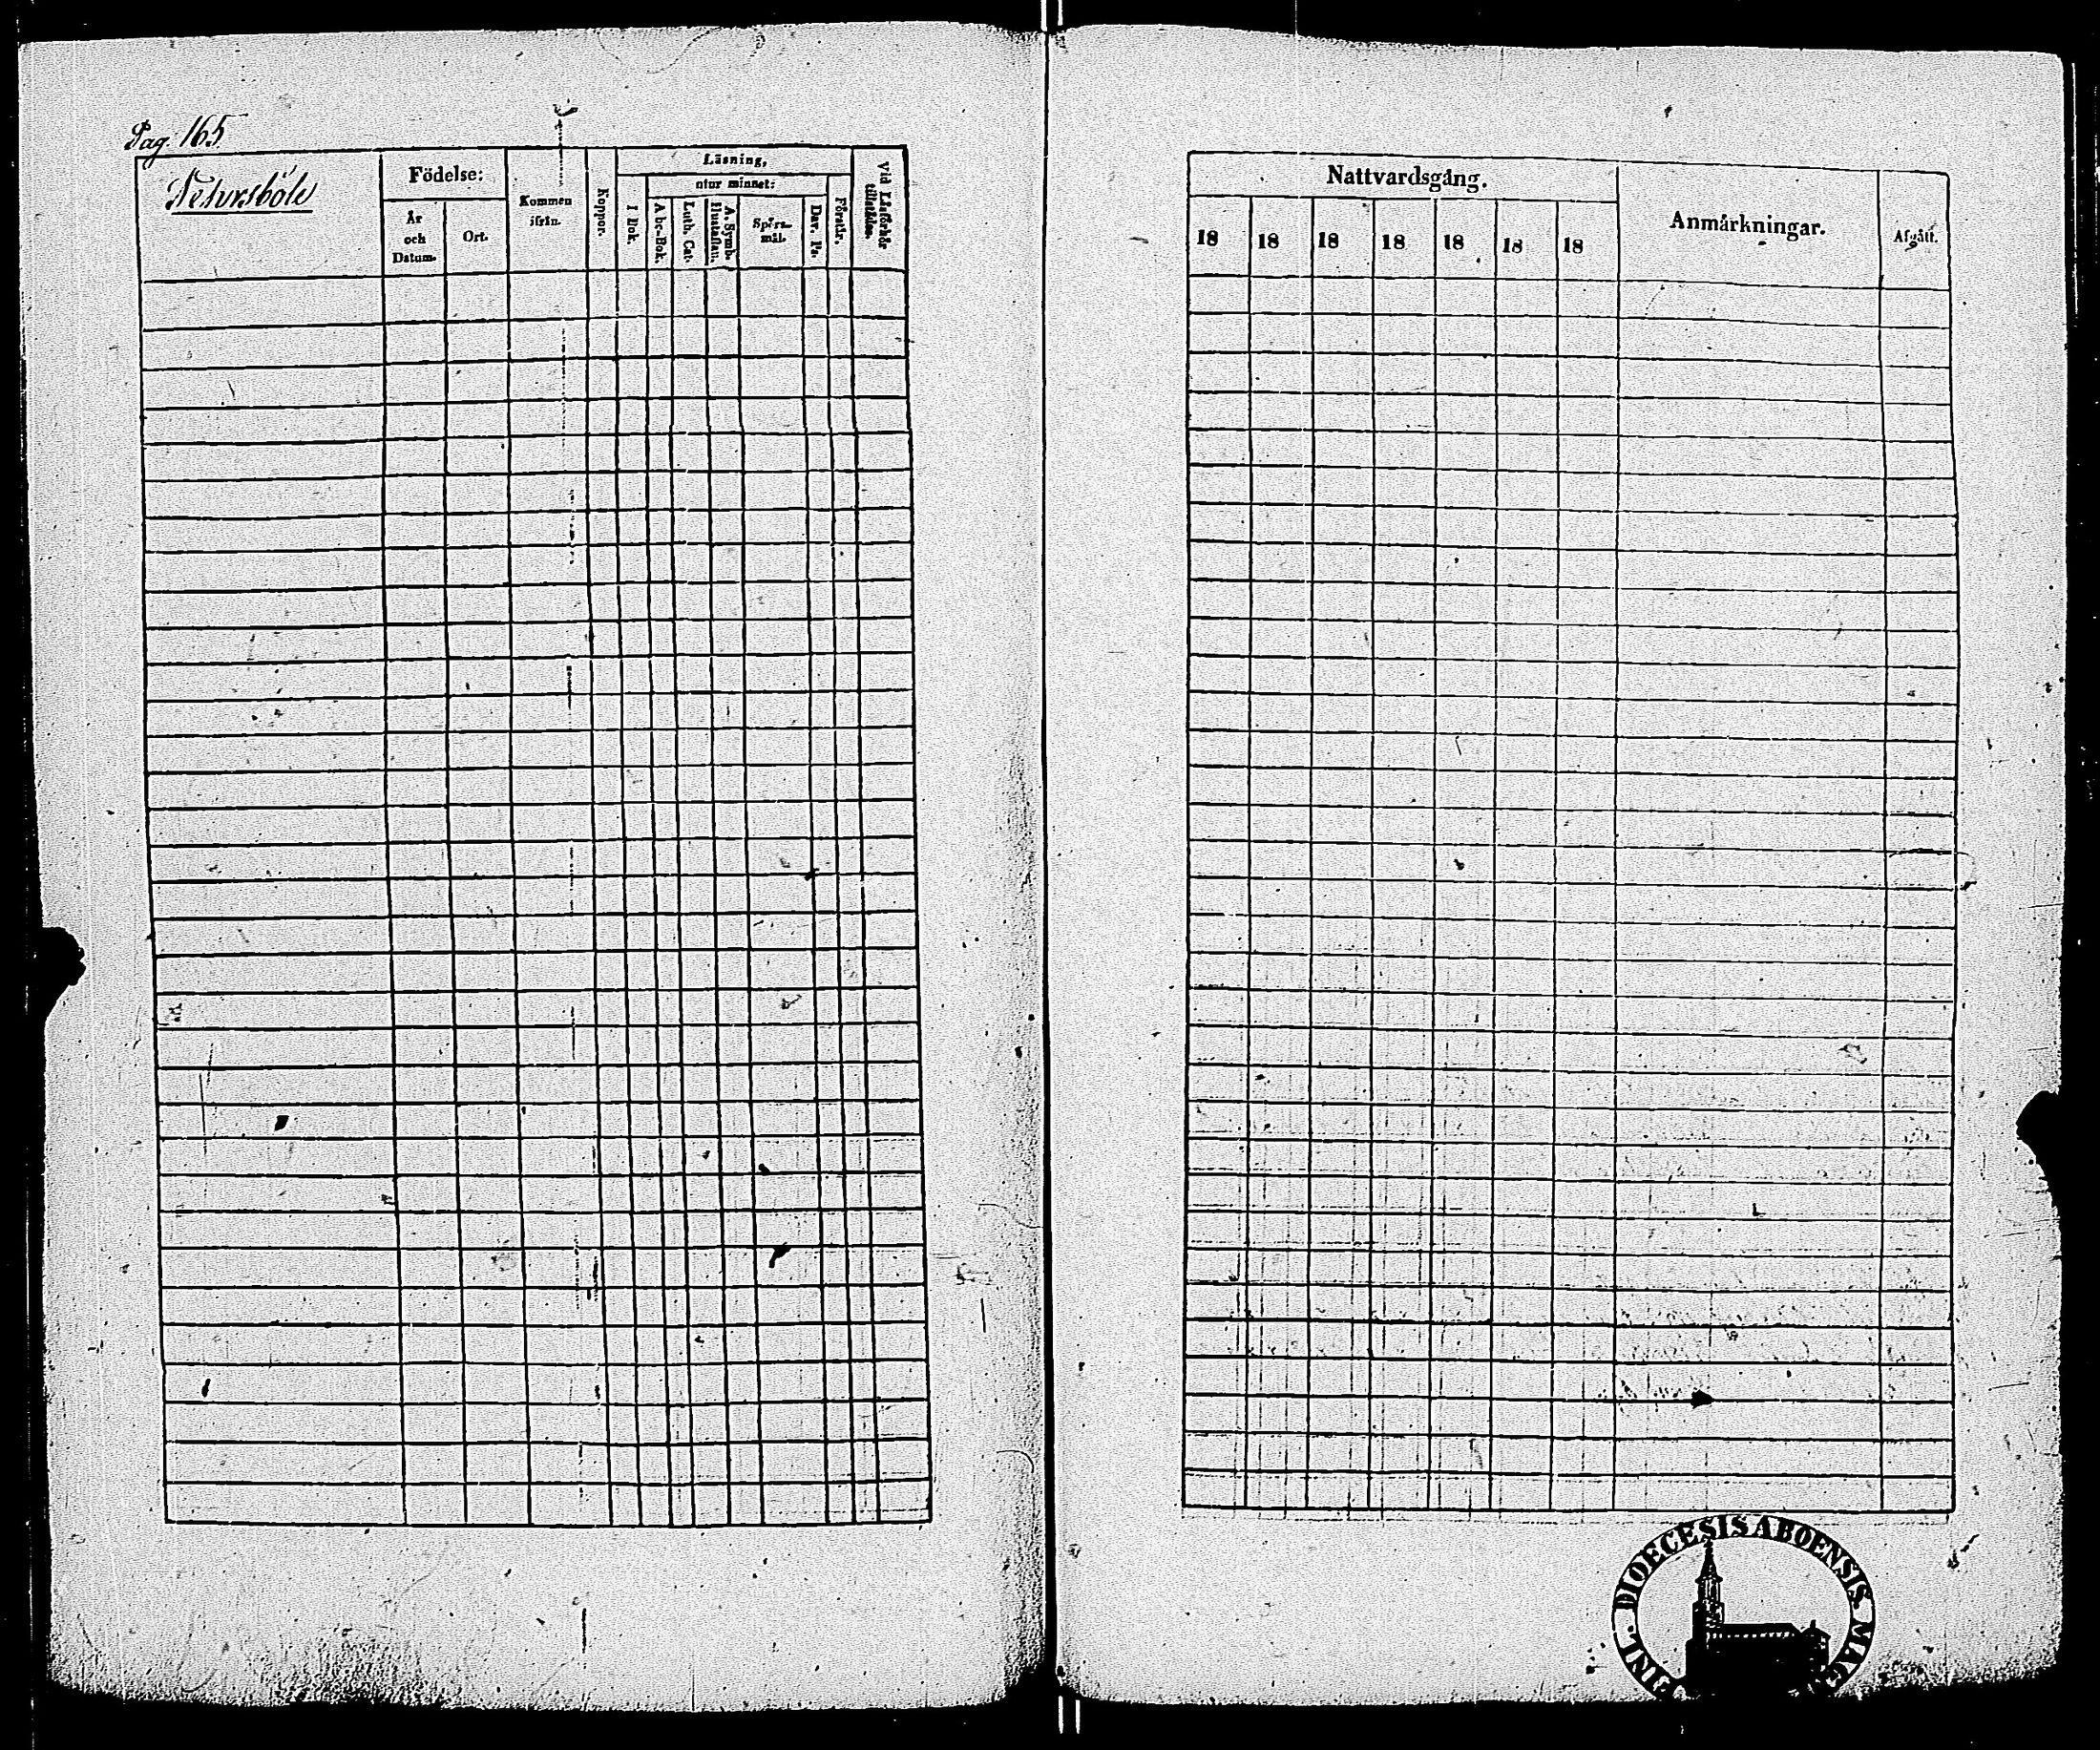 Pag. 165
Födelse:
År
och
Datum.
Ort.
Kommen
ifrån.
Koppor.
Läsning,
utur minnet:
I Bok.
A bc-Bok.
Luth. Cat.
A. Symb.
Hustaflan.
Spörs-
mål.
Dav. Ps.
Förstår.
Vid Läsförhör
tillstädes.
Nattvardsgång.
18 18 18 18 18 18 18
Anmärkningar.
Afgått.
DIOECESIS ABOENSIS